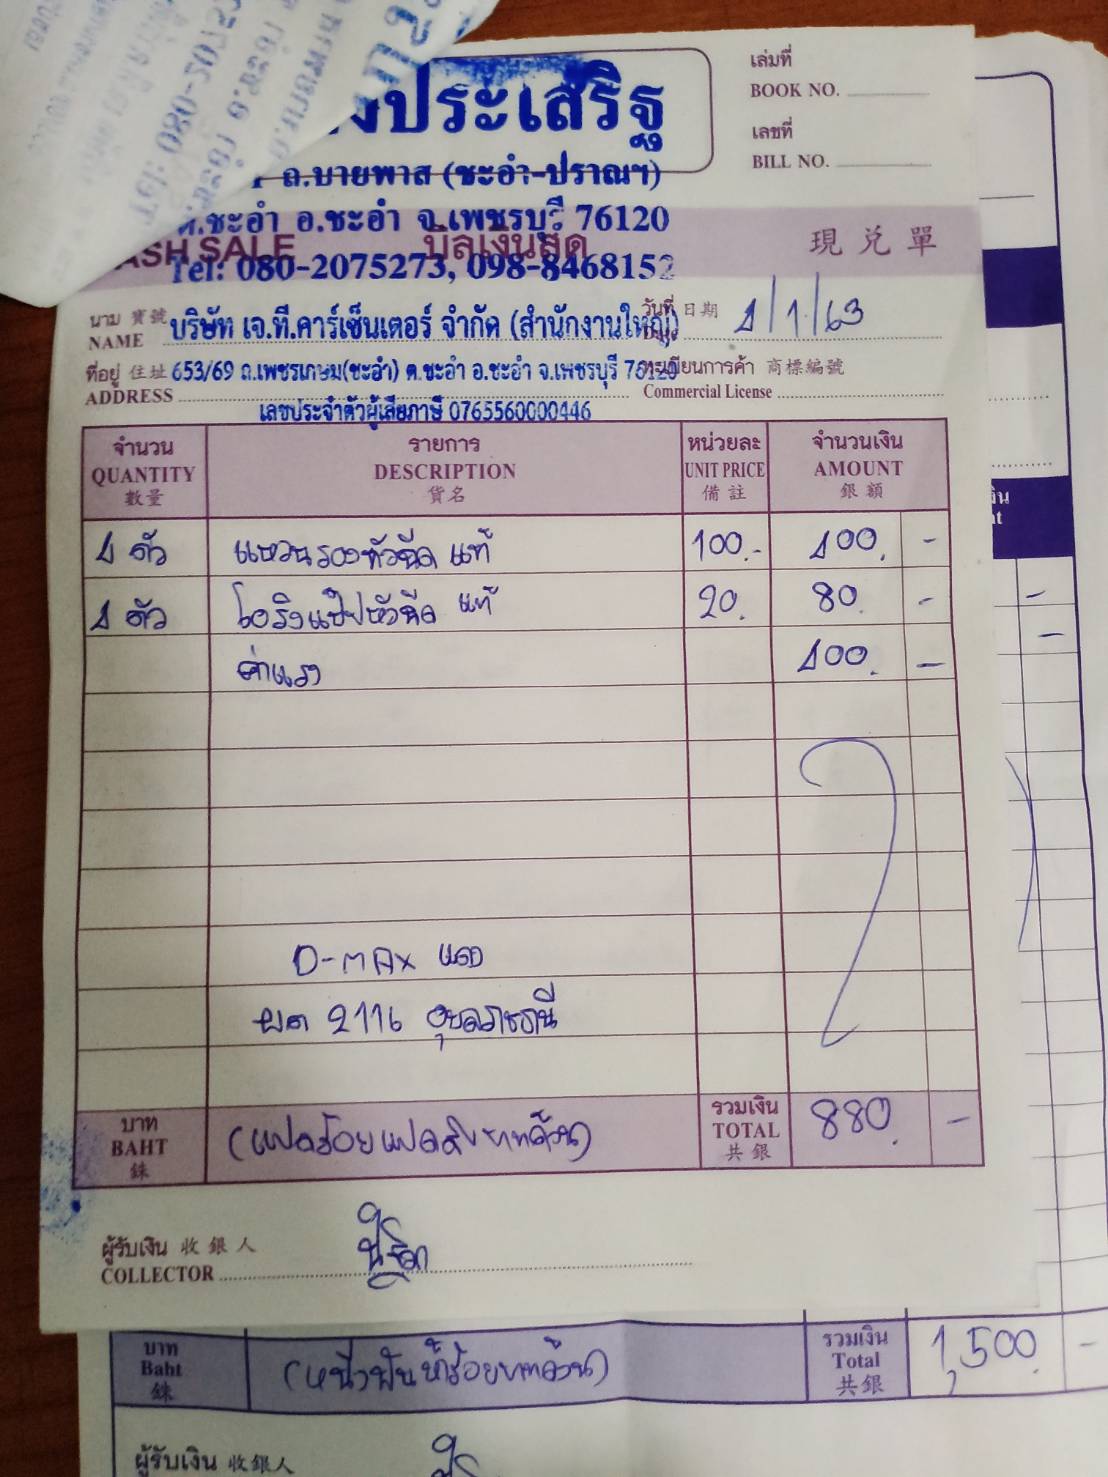 งประเสริฐ
ถ.บายพาส (ชะอำ-ปราณฯ)
ต.ชะอำ อ.ชะอำ จ.เพชรบุรี 76120
Tel: 080-2075273, 098-8468152
เล่มที่
BOOK NO.
เลขที่
BILL NO.
ASH SALE บิลเงินสด 現兑單
นาม 寶號 บริษัท เจ.ที.คาร์เซ็นเตอร์ จำกัด (สำนักงานใหญ่)
NAME
วันที่ 日期 1/1/63
ที่อยู่ 住址 653/69 ถ.เพชรเกษม(ชะอำ) ต.ชะอำ อ.ชะอำ จ.เพชรบุรี 76120
ADDRESS
ทะเบียนการค้า 商標編號
Commercial License
เลขประจำตัวผู้เสียภาษี 0765560000446
จำนวน รายการ หน่วยละ จำนวนเงิน
QUANTITY DESCRIPTION UNIT PRICE AMOUNT
數量 貨名 備註 銀額
1 ตัว แหวนรองหัวฉีด แท้ 100.- 100. -
1 ตัว โอริงแป๊ปหัวฉีด แท้ 20. 80. -
ค่าแรง 100. -
D-MAX แดง
ผต 2116 อุบลราชธานี
บาท
BAHT
銖
(แปดร้อยแปดสิบบาทถ้วน)
รวมเงิน
TOTAL
共銀
880. -
ผู้รับเงิน 收銀人
COLLECTOR
บาท
Baht
銖
(หนึ่งพันห้าร้อยบาทถ้วน)
รวมเงิน
Total
共銀
1,500. -
ผู้รับเงิน 收銀人